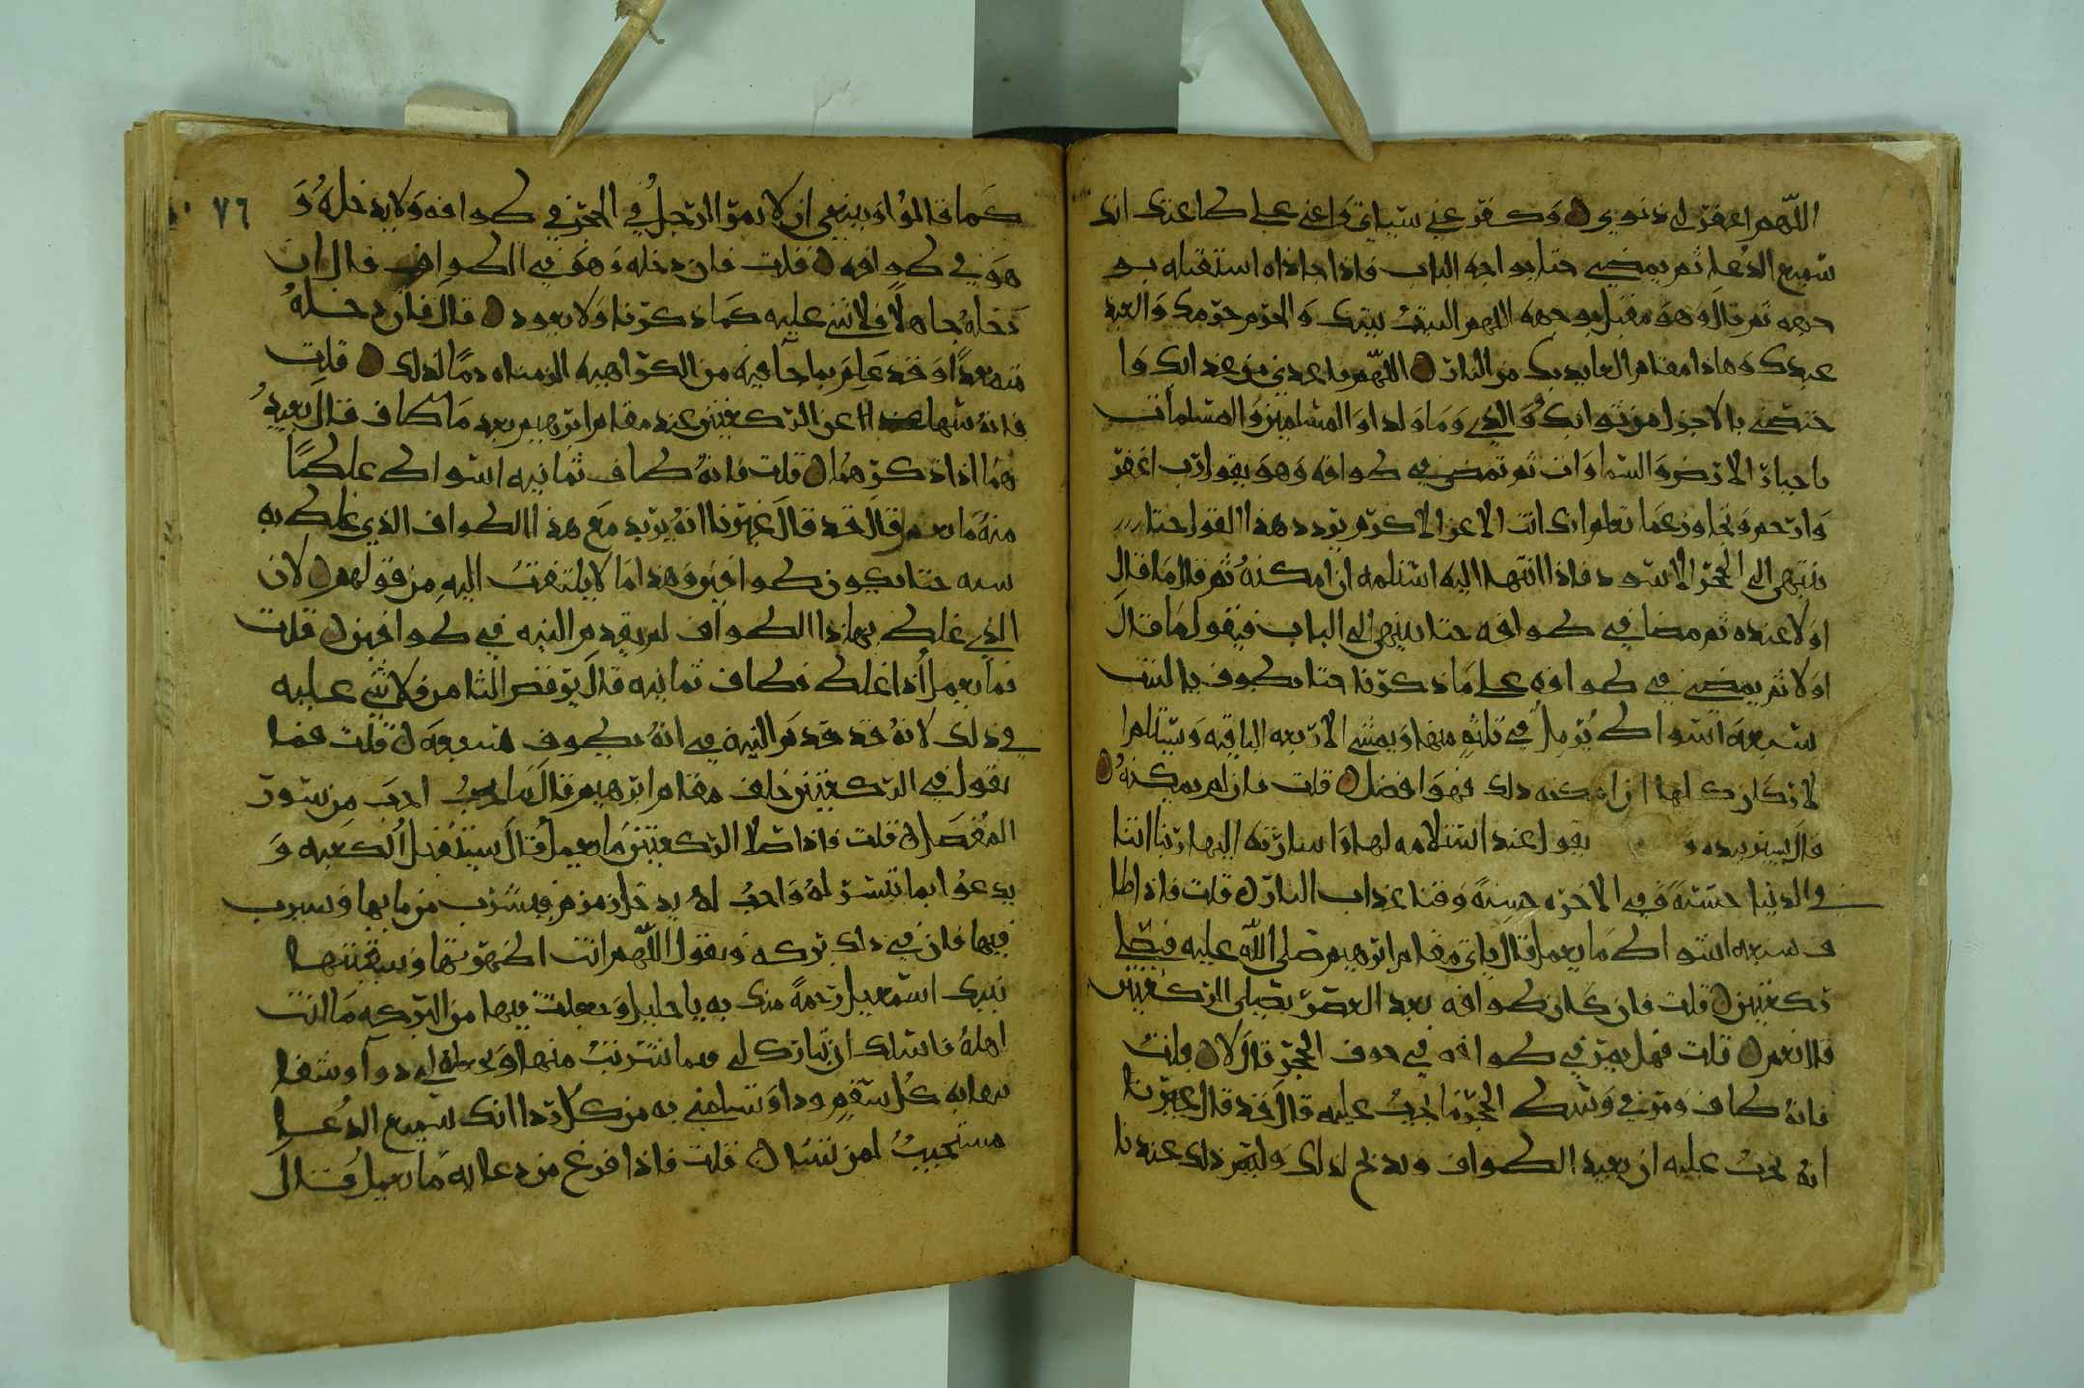 اللهم اغفر لي ذنوبي وكفر عني سياتي واعني على طاعتك انك
سميع الدعا ثم يمضي حتا يواجه الباب فاذا حاذاه استقبله بو
جهه ثم قال وهو مقبل بوجهه اللهم البيت بيتك والحرم حرمك والعبد
عبدك وهاذا مقام العايذ بك من النار اللهم فاعذني من عذابك وا
ختصني بالاجزل من ثوابك ووالدي وما ولدا والمسلمين والمسلمات
يا جبار الارض والسماوات ثم تمضي في طوافه وهو يقول رب اغفر
وارحم وتجاوز عما تعلم انك انت الاعز الاكرم يردد هذا القول حتا
ينتهي الى الحجر الاسود فاذا انتها اليه استلمه ان امكنه ثم قال ما قال
اولا عنده ثم مضا في طوافه حتا ينتهي الى الباب فيقول ما قال
اولا ثم يمضي في طوافه على ما ذكرنا حتا يطوف بالبيت
سبعه اسواط يرمل في ثلثه منها ويمشي الاربعه الباقيه ويستلم ا
لاركان كلها ان امكنه ذلك فهو افضل قلت فان لم يمكنه
قال يشير بيده و يقول عند استلامه لها واشارته اليها ربنا اتنا
في الدنيا حسنة وفي الاخره حسنة وقنا عذاب النار قلت فاذا طا
ف سبعه اسواط ما يعمل قال ياتي مقام ابرهيم صلى الله عليه فيصلي
ركعتين قلت فان كان طوافه بعد العصر يصلي الركعتين
قال نعم قلت فهل يمر في طوافه في جوف الحجر قال لا قلت
فانه طاف ومر في وسط الحجر ما يجب عليه قال قد قال غيرنا
انه يجب عليه ان يعيد الطواف ويذبح لذلك وليس ذلك عندنا
٧٦
كما قالوا وينبغي ان لا يمر الرجل في الحجر في طوافه ولا يدخله و
هو في طوافه قلت فان دخله وهو في الطواف قال ان
دخله جاهلا فلا شي عليه كما ذكرنا ولا يعود قال فان دخله
متعمدا وقد علم بما جا فيه من الكراهيه الزمناه دما لذلك قلت
فانه سها عن الركعتين عند مقام ابرهيم بعد ما طاف قال يعيد
هما اذا ذكرهما قلت فانه طاف ثمانيه اسواط غلطا
منه ما يعمل قال قد قال غيرنا انه يزيد مع هذا الطواف الذي غلط به
سته حتا يكون طوافين وهذا ما لا يلتفت اليه من قولهم لان
الذي غلط بهاذا الطواف لم يقدم النيه في طوافين قلت
فما يعمل اذا غلط فطاف ثمانيه قال يرفض الثامن فلا شي عليه
في ذلك لانه قد قدم النيه في انه يطوف سبعه قلت فما
يقول في الركعتين خلف مقام ابرهيم قال ما احب من سور
المفصل قلت فاذا صلا الركعتين ما يعمل قال يستقبل الكعبه و
يدعوا بما تيسر له واحب له يدخل زمزم فيشرب من مايها
فيها فان في ذلك بركه ويقول اللهم انت اظهرتها وسقيتها
نبيك اسمعيل رحمة منك به يا جليل وجعلت فيها من البركه ما انت
اهله فاسلك ان تبارك لي فيما شربت منها وتجعله لي دوا وشفا
كل سقم ودا وتسلمني به من كل ردا انك سميع الدعا
مستجيب لمن تشا قلت فاذا فرغ من دعايه ما يعمل قال